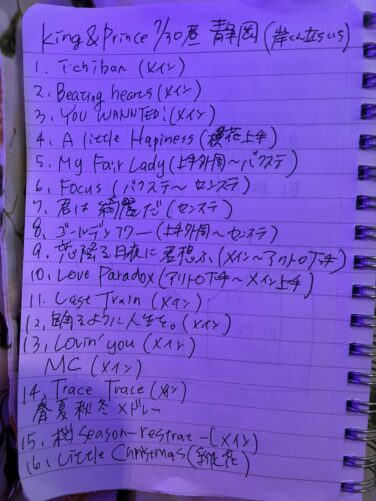 King & Prince 7/30昼 静岡 (岸くん立ちいち
1. ichiban (メイン)
2. Beating hearts (メイン)
3. YOU WANNTED! (メイン)
4. A little Hapiness (横花上手)
5. My Fair Lady (上手外周〜バクステ)
6. Focus (バクステ〜センステ)
7. 君は綺麗だ (センステ)
8. ゴールデンアワー (上手外周〜センステ)
9. 花降る月夜に君想ふ (メイン〜アリトロ下手)
10. Love Paradox (アリトロ下手〜メイン上手)
11. Last Train (メイン)
12. 踊るように人生を。(メイン)
13. Lovin' you (メイン)
MC (メイン)
14. Trace Trace (メイン)
春夏秋冬メドレー
15. 桜season-restrat- (メイン)
16. Little Christmas (花)